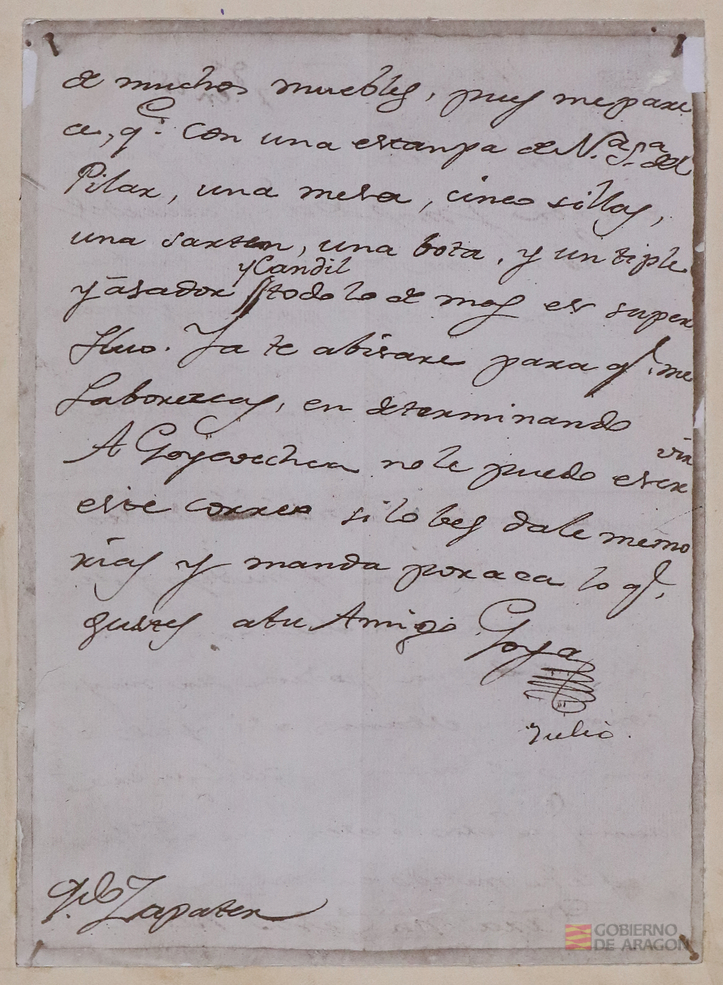 de muchos muebles, pues me pare
ce, qe. con una estanpa de Na. Sa. del
Pilar, una mesa, cinco sillas,
una sarten, una bota, y un tiple
y Candil
y asador todo lo de mas es super
fluo. Ya te abisare para qe. me
faborezcas, en determinando
A Goycoechea no le puedo escri
vir
este correo si lo bes dale memo
rias y manda por aca lo qe.
gustes a tu Amigo Goya
Julio.
Zapater
GOBIERNO
DE ARAGON